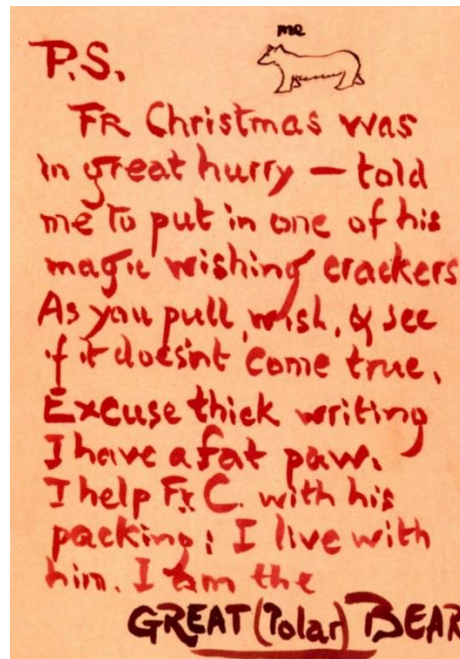 me
P.S.
FR Christmas was
in great hurry — told
me to put in one of his
magic wishing crackers
As you pull, wish, & see
if it doesn't come true.
Excuse thick writing
I have a fat paw.
I help Fr. C. with his
packing: I live with
him. I am the
GREAT (Polar) BEAR